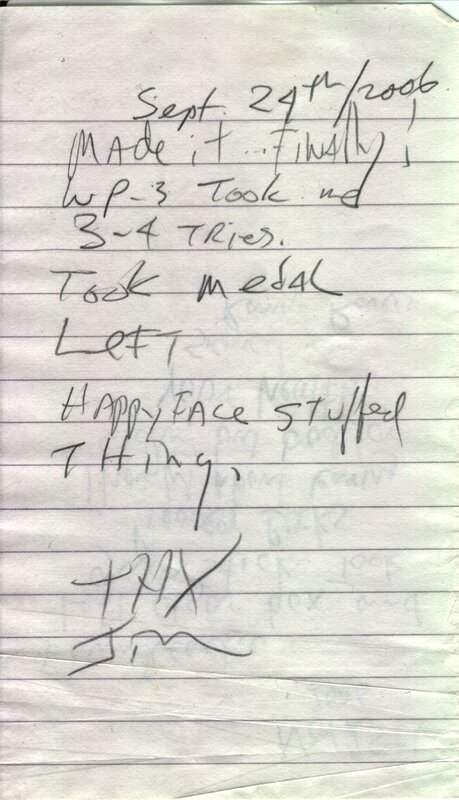 Sept. 24th/2006
Made it... Finally!
WP-3 Took me
3-4 TRies.
Took medal
LeFT
HAppy FAce stuffed
THing.
Jim